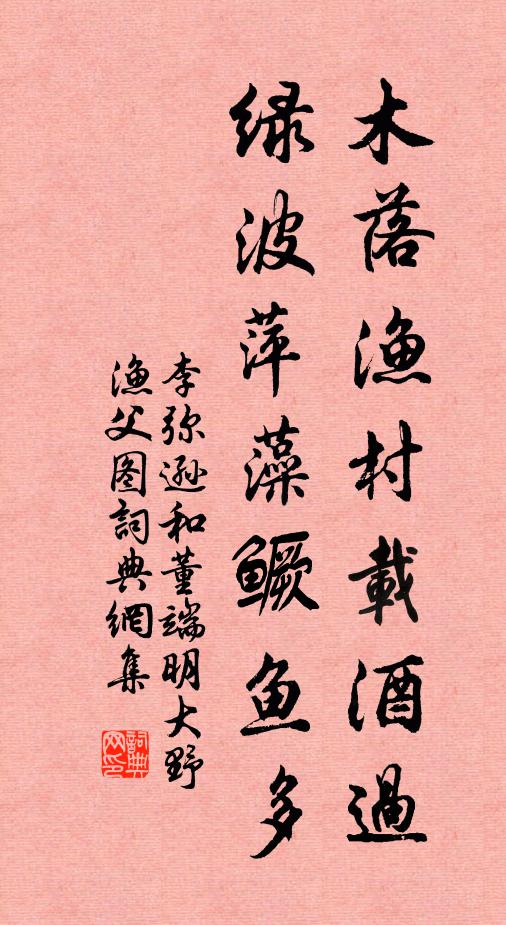 木落渔村載酒過
绿波萍藻鳜鱼多
李弥逊和董端明大野
渔父图詞典網集
詞典网印